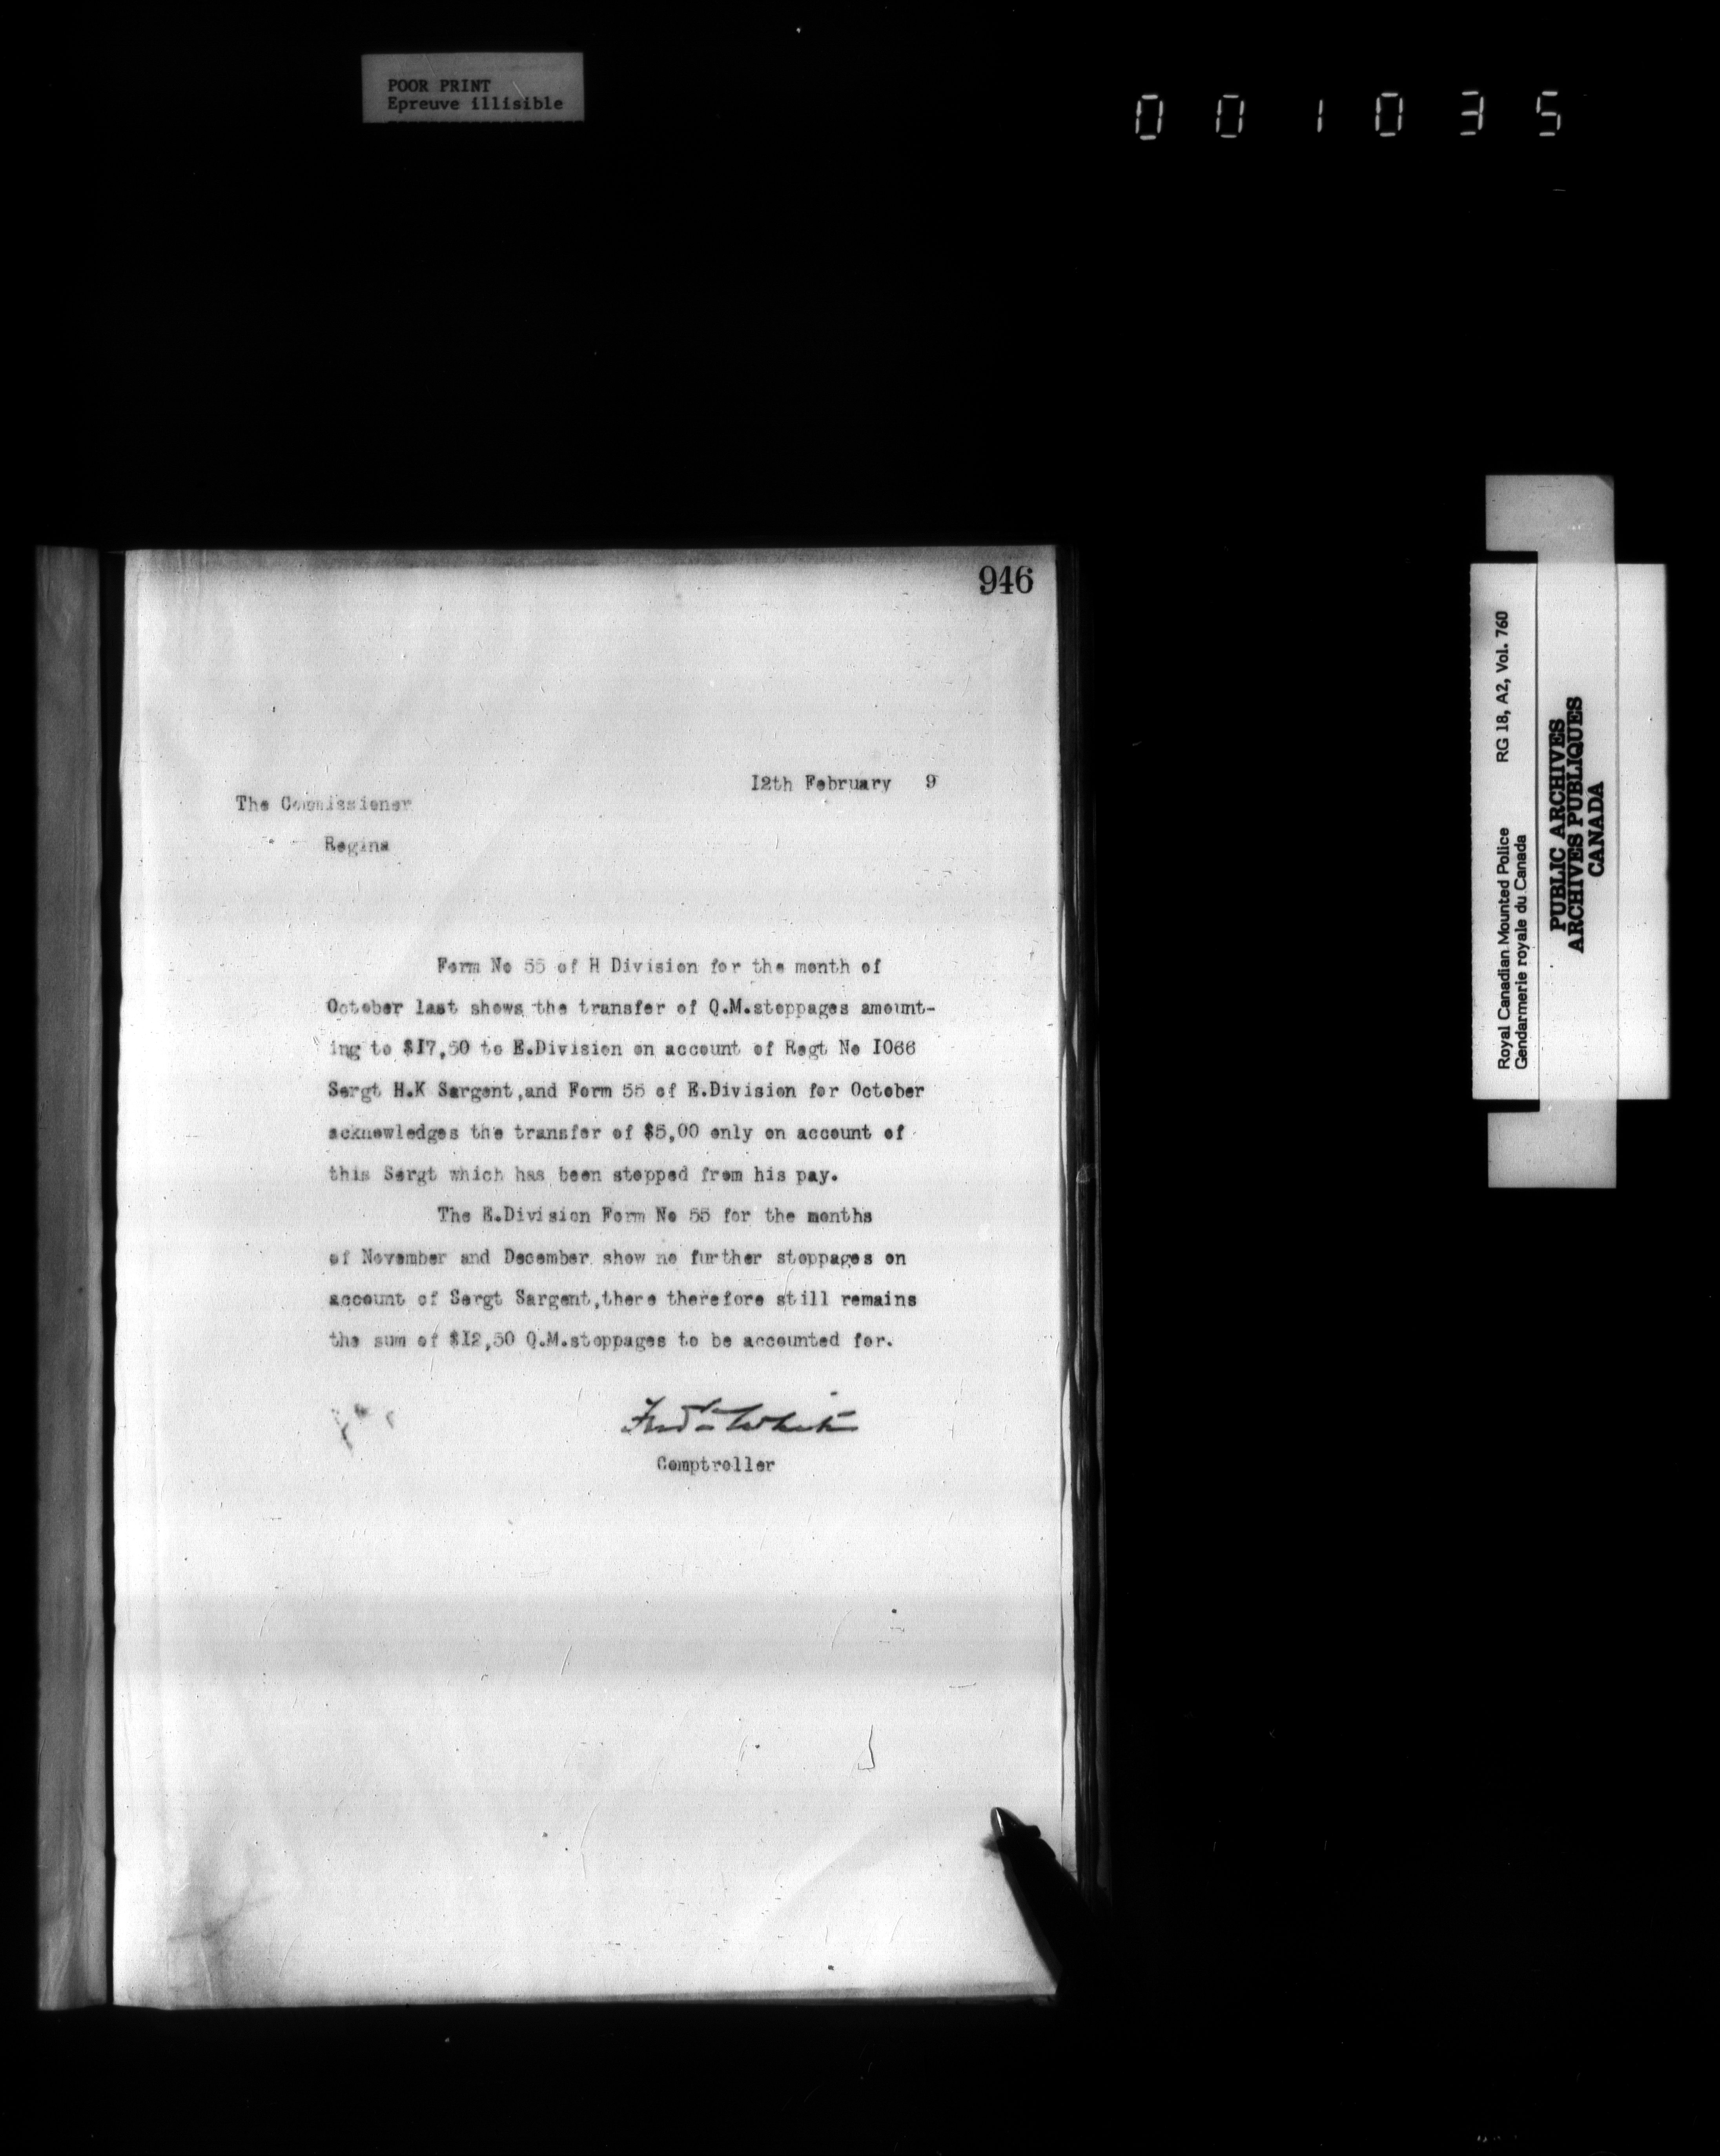 POOR PRINT
Epreuve illisible
001035
946
12th February 9
The Commissioner
Regina
Form No 55 of H Division for the month of
October last shows the transfer of Q.M.stoppages amount-
ing to $17,50 to E.Division on account of Regt No 1066
Sergt H.K Sargent,and Form 55 of E.Division for October
acknowledges the transfer of $5,00 only on account of
this Sergt which has been stopped from his pay.
The E.Division Form No 55 for the months
of November and December show no further stoppages on
account of Sergt Sargent,there therefore still remains
the sum of $12,50 Q.M.stoppages to be accounted for.
Fred White
Comptroller
Royal Canadian Mounted Police RG 18, A2, Vol. 760
Gendarmerie royale du Canada
PUBLIC ARCHIVES
ARCHIVES PUBLIQUES
CANADA